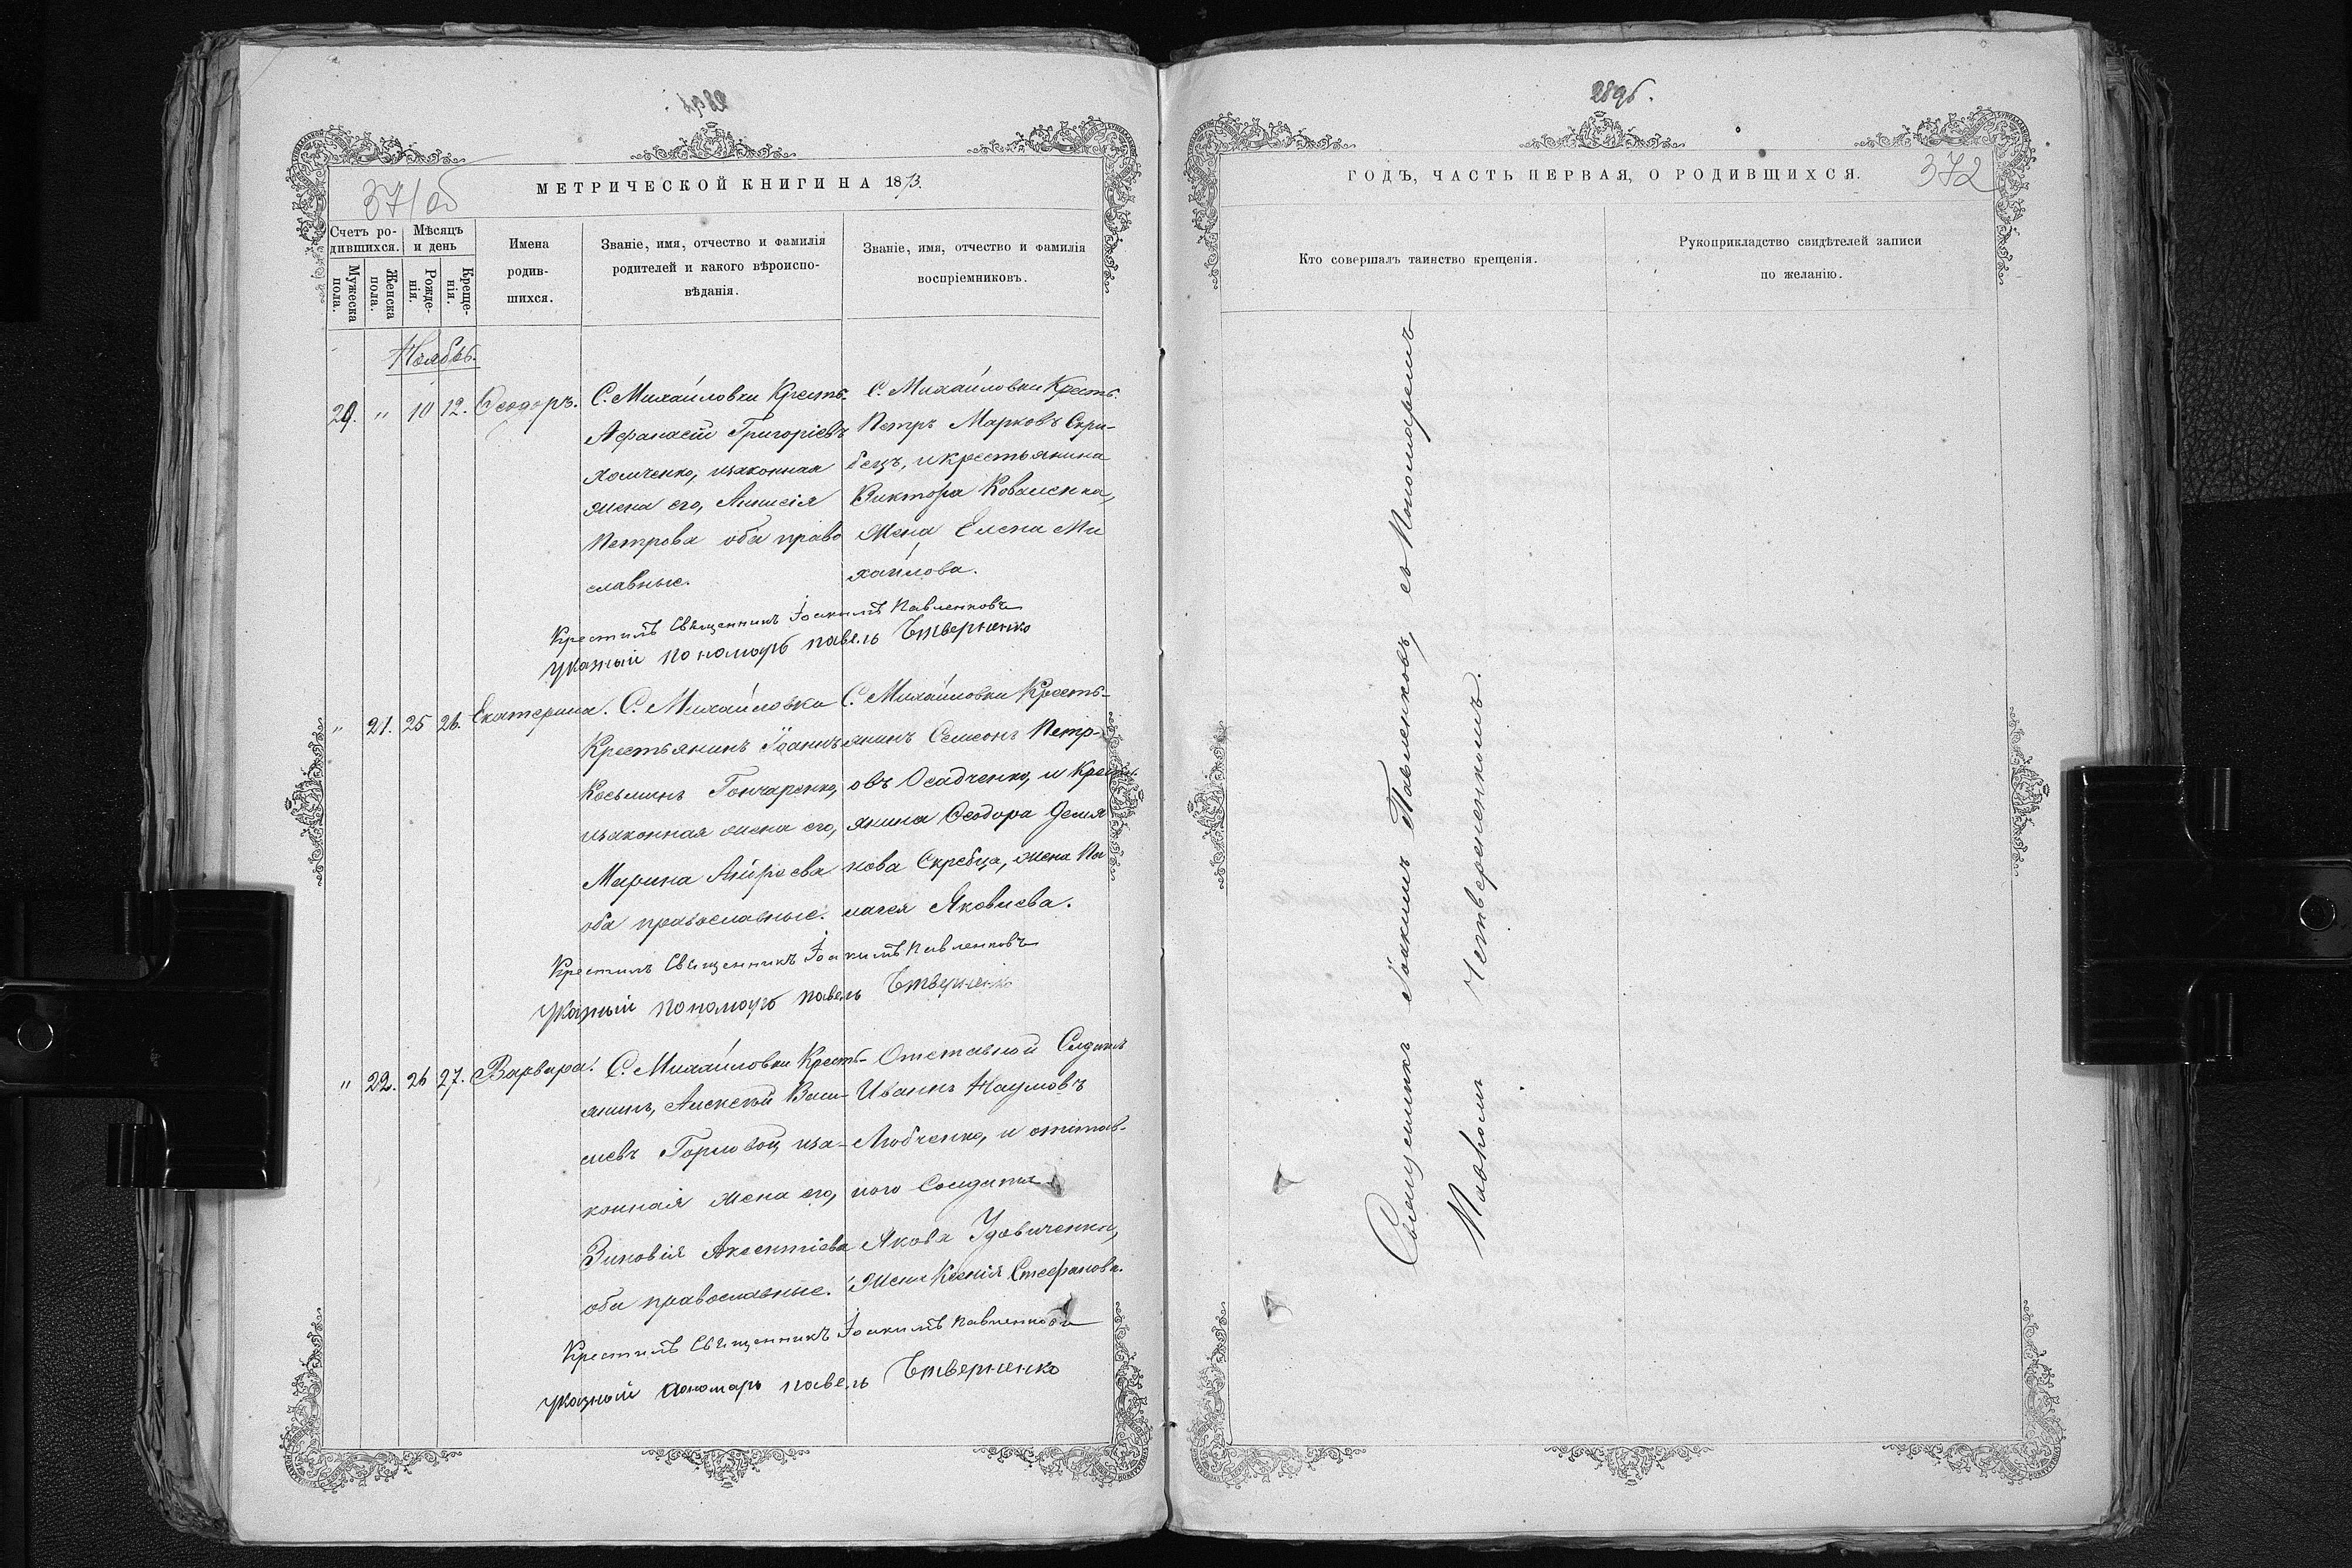 371 об
МЕТРИЧЕСКОЙ КНИГИ НА 1873.
Счетъ ро-
дившихся.
Мужеска
пола.
Женска
пола.
Мѣсяцъ
и день
Рожде-
нія.
Креще-
нія.
Имена
родив-
шихся.
Званіе, имя, отчество и фамилія
родителей и какого вѣроиспо-
вѣданія.
Званіе, имя, отчество и фамилія
воспріемниковъ.
Ноябрь.
20. " 10 12. Ѳеодоръ.
С. Михайловки Кресть.
Афанасій Григоріевъ
Хомченко, изаконная
жена его, Анисія
Петрова оба право
славные.
С. Михайловки Кресть.
Петръ Марковъ Скри-
бецъ, и крестьянина
Виктора Коваленка,
жена Елена Ми
хайлова.
Крестилъ Священникъ Іоакимъ Павленковъ
Указный пономарь павелъ Етверненко
" 21. 25 26. Екатерина.
С. Михайловки
Крестьянинъ Іоаннъ
Косьминъ Гончаренко,
изаконная жена его,
Марина
оба православные.
С. Михайловки Кресть-
янинъ Семеонъ Петр-
овъ Осадченко, и Кресть-
янина Ѳеодора Демья
нова Скребца, жена Па
лагея Яковлева.
Крестилъ Священникъ Іоакимъ Павленковъ
Указный пономарь павелъ Етверненко
" 22. 26 27. Варвара.
С. Михайловки Кресть-
янинъ, Алексѣй Васи-
лиевъ Горловой, иза-
конная жена его,
Зиновія Аксентіева
оба православные.
Отставной Солдатъ
Иванъ Наумовъ
Любченко, и отстав-
ного Солдата
Якова Удовиченка,
жена Ксенія Стефанова.
Крестилъ Священникъ Іоакимъ Павленковъ
указный пономарь павелъ Етверненко
289б.
ГОДЪ, ЧАСТЬ ПЕРВАЯ, О РОДИВШИХСЯ.
372
Кто совершалъ таинство крещенія.
Рукоприкладство свидѣтелей записи
по желанію.
Священникъ Іоакимъ Павленковъ, съ Пономаремъ
Павломъ Четверненкомъ.